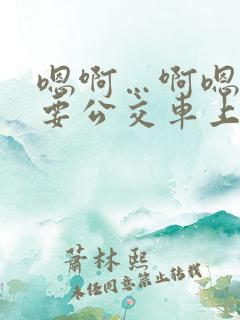 嗯啊…啊嗯
要公交车上
萧林熙
未经同意禁止转载